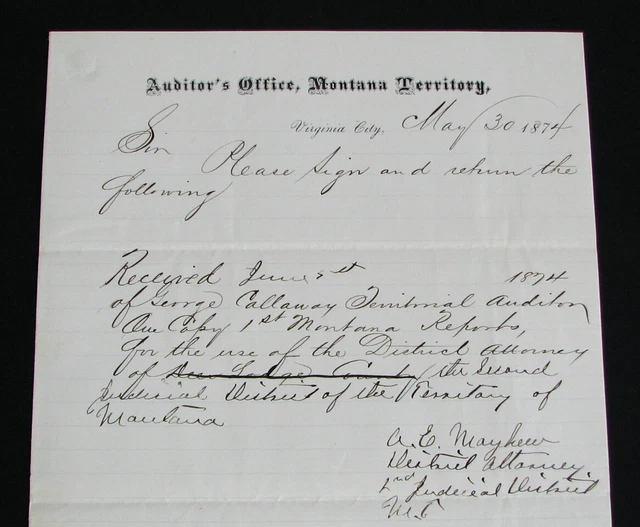 Auditor's Office, Montana Territory,
Virginia City, May 30 1874
Sir
Please Sign and return the
following
Received June 1874
of George Callaway Territorial Auditor
One Copy 1st Montana Reports,
for the use of the District Attorney
of Deer Lodge County the Second
Judicial District of the Territory of
Montana
A. E. Mayhew
District Attorney
2nd Judicial District
M. T